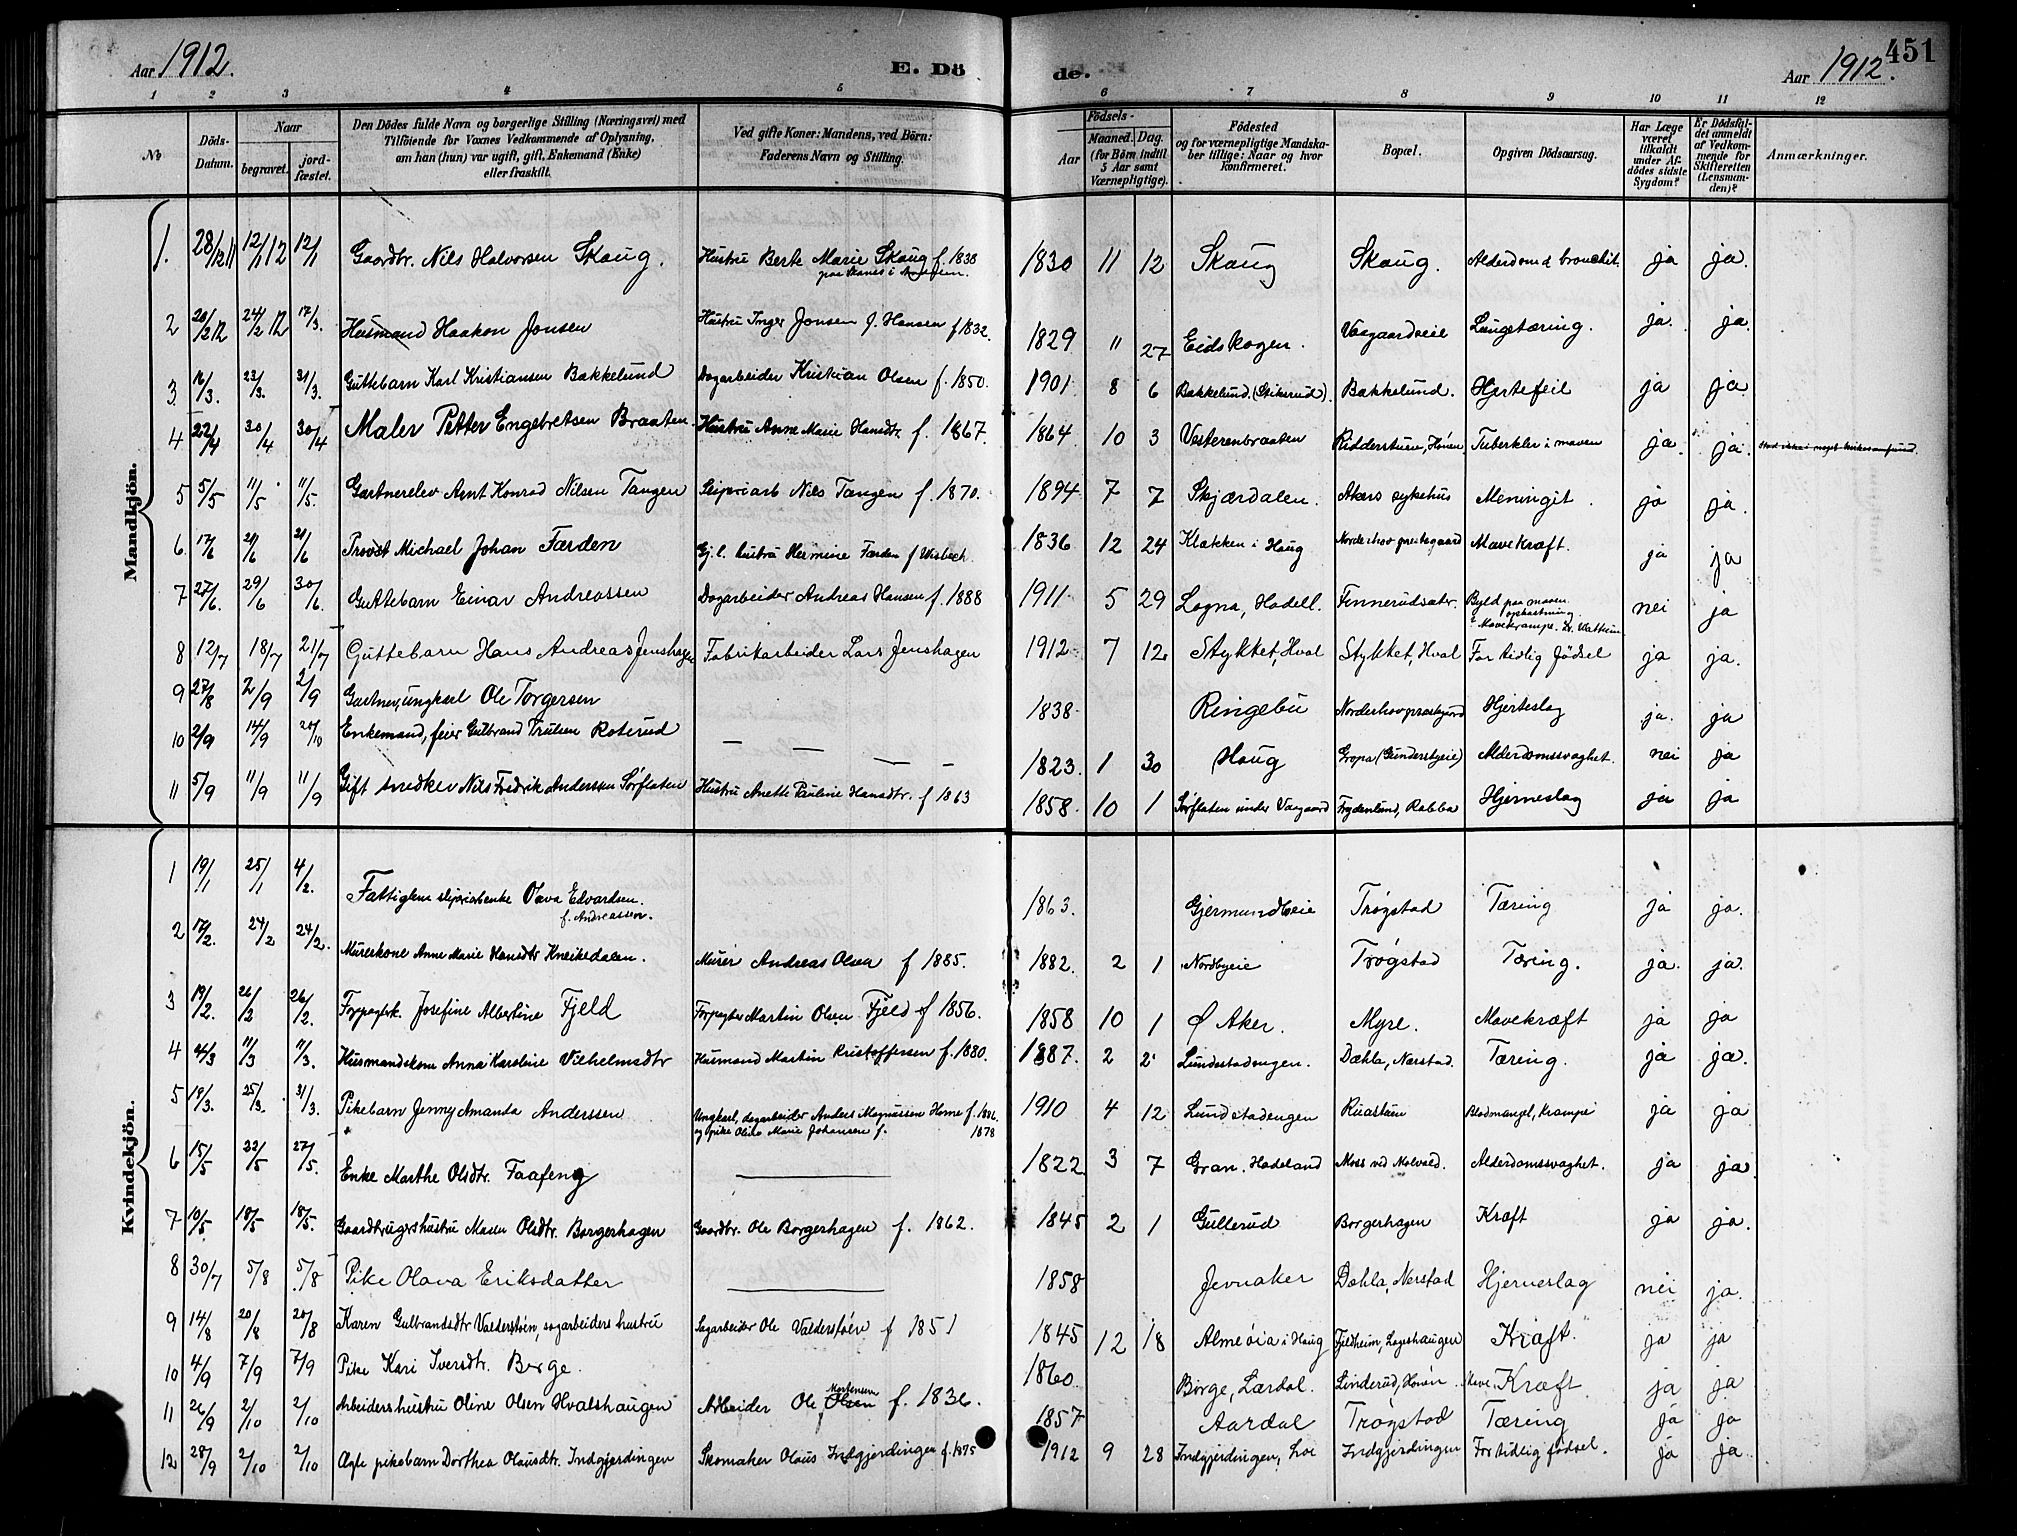 Aar 1912.
E. Dö
de.
451
Aar 1912.
1 2 3 4 5 6 7 8 9 10 11 12
No
Döds-Datum.
Naar
begravet.
jord-fæstet.
Den Dödes fulde Navn og borgerlige Stilling (Næringsvei) med
Tilföiende for Voxnes Vedkommende af Oplysning,
om han (hun) var ugift, gift, Enkemand (Enke)
eller fraskilt.
Ved gifte Koner: Mandens, ved Börn:
Faderens Navn og Stilling.
Födsels-
Aar
Maaned. Dag.
(for Börn indtil
5 Aar samt
Værnepligtige).
Födested
og for værnepligtige Mandska-
ber tillige: Naar og hvor
konfirmeret.
Bopæl.
Opgiven Dödsaarsag.
Har Læge
været
tilkaldt
under Af-
dödes sidste
Sygdom?
Er Dödsfal-
det anmeldt
af Vedkom-
mende for
Skifteretten
(Lensman-
den)?
Anmærkninger.
Mandkjön.
1. 28/12 11 12/1 12 12/1 Gaardbr. Nils Halvorsen Skaug. Hustru Berte Marie Skaug f. 1830 1830 11 12 Skaug Skaug. Alderdom & bronchit. ja ja.
2 20/2 12 24/2 12 17/3. Husmand Haakon Jonsen Hustru Inger Jonsen f. Hansen f 1832. 1829 11 27 Eidskogen. Vaagaardseie Lungetæring. ja. ja.
3. 16/3. 23/3. 31/3. Guttebarn Karl Kristiansen Bakkelund Dagarbeider Kristian Olsen f. 1850. 1901 8 6 Bakkelund. (Stikerud). Bakkelund. Hjertefeil ja ja
4 22/4 30/4 30/4 Maler Petter Engebretsen Braaten. Hustru Anne Marie Hansdtr. f. 1867. 1864 10 3 Vesterenbraaten Ridderstuen, Hönen Tuberkler i maven ja. ja.
5 5/5 11/5 11/5. Gartnerelev Arnt Konrad Nilsen Tangen Sliperiarb Nils Tangen f. 1870. 1894 7 7 Skjærdalen. Akers sykehus Meningit. ja ja.
6. 17/6 21/6 21/6 Provst Michael Johan Færden Gj. l. hustru Hermine Færden f Wisbech. 1836 12 24 Klækken i Haug Norderhov prestegaard Mavekræft. ja ja
7 27/6. 29/6 30/6. Guttebarn Einar Andreassen Dagarbeider Andreas Hansen f. 1888 1911 5 29 Logna, Hadell. Finnerudsæter. Byld paa maven. opkastning Mavekrampe. nei ja
8 12/7 18/7 21/7 Guttebarn Hans Andreas Jenshagen Fabrikarbeider Lars Jenshagen 1912 7 12 Stykket, Hval Stykket, Hval For tidlig födsel ja ja.
9 27/8 2/9 2/9 Gartner, ungkarl Ole Torgersen 1838 Ringebu Norderhov prestegaard Hjerteslag ja. ja
10 2/9 14/9 20/10 Enkemand, feier Gulbrand Trulsen Roterud — — — — 1823. 1 30 Haug Gropa (Gundersbyeie) Alderdomssvaghet. nei ja
11 5/9 11/9 11/9 Gift snedker Nils Fredrik Anderssen Sørflaten Hustru Anette Pauline Hansdtr. f 1863 1858. 10 1 Sørflaten under Vaagaard Frydenlund, Rabba Hjerneslag ja ja
Kvindekjön.
1 19/1 25/1 4/2. Fattiglem sliperiarbenke Oava Edvardsen. f. Andreassen. 1863. Gjermundboeie Trøgstad Tæring ja ja.
2 17/2. 24/2 24/2. Murerkone Anne Marie Hansdtr Kneikedalen. Murer Andreas Olsen f 1885. 1882. 2 1 Nordbyeie Trøgstad Tæring. ja. ja.
3 19/2. 26/2 26/2. Forpagterk. Josefine Albertine Fjeld Forpagter Martin Olsen Fjeld f 1856. 1858 10 1 Ø Aker. Myre. Mavekræft ja ja
4 4/3 11/3 11/3. Husmandskone Anna Karoline Vilhelmsdtr Husmand Martin Kristoffersen f. 1880. 1887. 2 2 Lundestadengen. Dæhla, Nærstad. Tæring. ja ja.
5 19/3. 25/3. 31/3. Pikebarn Jenny Amanda Anderssen Ungkarl, dagarbeider Anders Magnussen Horne f. 1886. og pike Marie Johansen f. 1878 1910 4 12 Lundstadengen Ruastuen Blodmangel, Krampe ja ja
6 15/5 22/5 27/5. Enke Marthe Olsdtr. Faafeng — 1822 3 7 Gran. Hadeland Moss ved Molvald. Alderdomssvaghet. ja ja.
7 10/5. 18/5 18/5. Gaardbrugershustru Maren Olsdtr. Borgerhagen Gaardbr. Ole Borgerhagen f. 1862. 1845 2 1 Gullerud Borgerhagen Kræft ja ja.
8 30/7 5/8 5/8 Pike Olava Eriksdatter — 1858 Jevnaker Dæhla, Nerstad Hjerneslag nei ja.
9 14/8 20/8 20/8 Karen Gulbrandsdtr Valderstøen, sagarbeiders hustru Sagarbeider Ole Valderstøen f 1851 1845 12 18 Almeöia i Haug Fjeldheim, Lageshaugen Kræft. ja ja
10 4/9 7/9 7/9 Pike Kari Iversdtr. Børge. 1860 Børge, Lærdal. Linderud, Hönen. Mave Kræft. ja ja
11 26/9 2/10 2/10 Arbeidershustru Oline Olsen Hvalshaugen Arbeider Ole Olsen Mortensen f. 1836. 1857 Aardal Trøgstad Tæring ja ja
12 28/9 2/10 2/10 Ægte pikebarn Dorthea Olausdtr. Indgjerdingen Skomaker Olaus Indgjerdingen f. 1875 1912 9 28 Indgjerdingen, Indgjerdingen For tidlig födsel. ja ja.